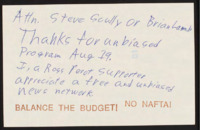 Attn. Steve Scully Or Brian Lamb
Thanks for unbiased
Program Aug 29.
I, a Ross Perot supporter
appreciate a free and unbiased
news network
BALANCE THE BUDGET! NO NAFTA!